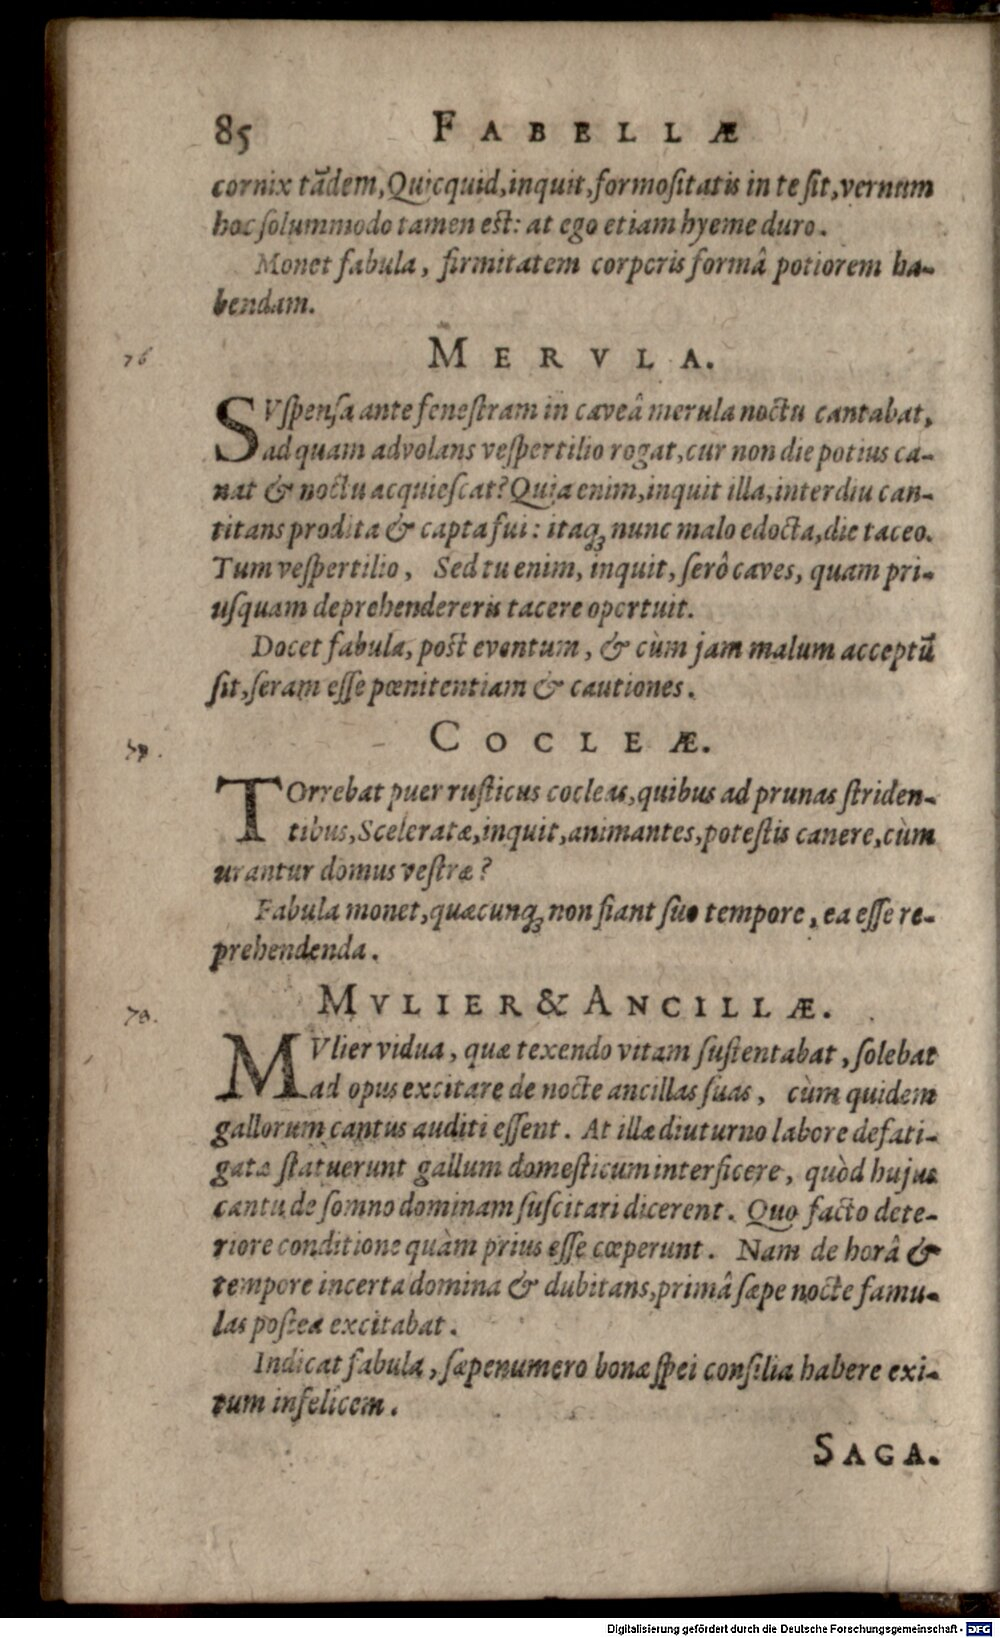 85 FABELLÆ
cornix tādem, Quicquid, inquit, formoſitatis in te ſit, vernum
hoc ſolummodo tamen est: at ego etiam hyeme duro.
Monet fabula, firmitatem corporis formâ potiorem ha-
bendam.
76
MERVLA.
SVſpenſa ante feneſtram in caveâ merula noctu cantabat,
ad quam advolans veſpertilio rogat, cur non die potius ca-
nat & noctu acquieſcat? Quia enim, inquit illa, interdiu can-
titans prodita & capta fui: itaq; nunc malo edocta, die taceo.
Tum veſpertilio, Sed tu enim, inquit, ſerô caves, quam pri-
uſquam deprehendereris tacere oportuit.
Docet fabula, post eventum, & cùm jam malum acceptū
ſit, ſeram eſſe pœnitentiam & cautiones.
COCLEÆ.
TOrrebat puer ruſticus cocleas, quibus ad prunas ſtriden-
tibus, Sceleratæ, inquit, animantes, poteſtis canere, cùm
urantur domus veſtræ?
Fabula monet, quæcunq; non fiant ſuo tempore, ea eſſe re-
prehendenda.
MVLIER & ANCILLÆ.
MVlier vidua, quæ texendo vitam ſuſtentabat, ſolebat
ad opus excitare de nocte ancillas ſuas, cùm quidem
gallorum cantus auditi eſſent. At illæ diuturno labore defati-
gatæ ſtatuerunt gallum domeſticum interficere, quòd hujus
cantu de ſomno dominam ſuſcitari dicerent. Quo facto dete-
riore conditione quàm prius eſſe cœperunt. Nam de horâ &
tempore incerta domina & dubitans, primâ ſæpe nocte famu-
las poſtea excitabat.
Indicat fabula, ſæpenumero bonæ ſpei conſilia habere exi-
tum infelicem.
SAGA.
Digitalisierung gefördert durch die Deutsche Forschungsgemeinschaft - DFG